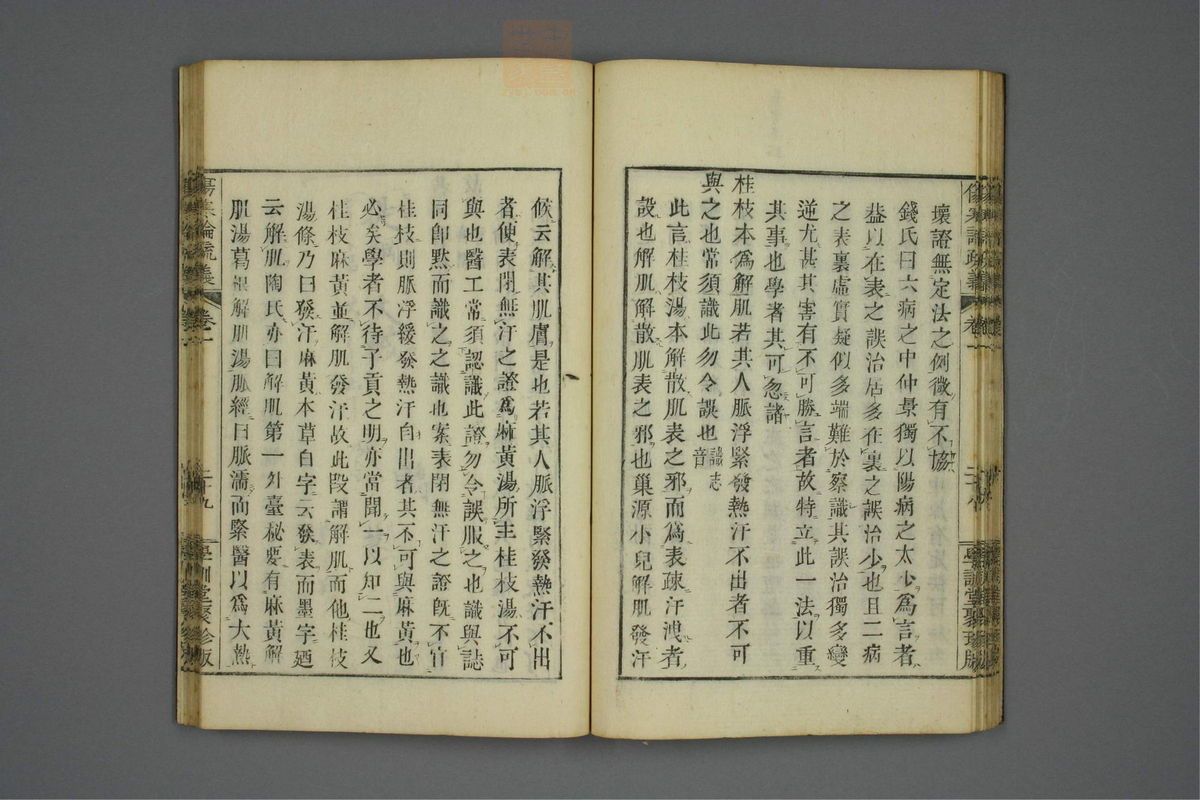 傷寒論疏義 卷一 二十八 學訓堂聚珍版
壞證無定法之例微有不協
錢氏曰六病之中仲景獨以陽病之太少為言者
蓋以在表之誤治居多在裏之誤治少也且二病
之表裏虛實疑似多端難於察識其誤治獨多變
逆尤甚其害有不可勝言者故特立此一法以重
其事也學者其可忽諸
桂枝本為解肌若其人脈浮緊發熱汗不出者不可
與之也常須識此勿令誤也識音志
此言桂枝湯本解散肌表之邪而為表疎汗洩者
設也解肌解散肌表之邪也巢源小兒解肌發汗
候云解其肌膚是也若其人脈浮緊發熱汗不出
者便表閉無汗之證為麻黃湯所主桂枝湯不可
與也醫工常須認識此證勿令誤服之也識與誌
同卽默而識之之識也案表閉無汗之證旣不宜
桂枝則脈浮緩發熱汗自出者其不可與麻黃也
必矣學者不待子貢之明亦當聞一以知二也又
桂枝麻黃並解肌發汗故此段謂解肌而他桂枝
湯條乃曰發汗麻黃本草白字云發表而墨字廼
云解肌陶氏亦曰解肌第一外臺秘要有麻黃解
肌湯葛根解肌湯脈經曰脈濡而緊醫以為大熱
傷寒論疏義 卷一 二十九 學訓堂聚珍版